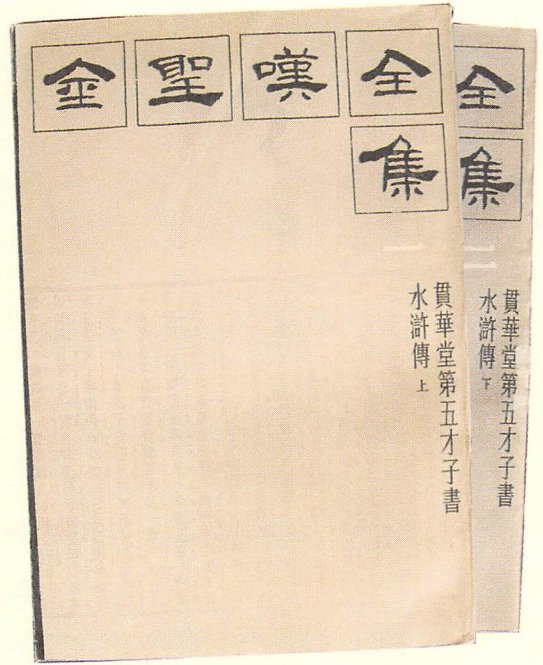 金聖嘆全
集
一
貫華堂第五才子書
水滸傳 上
全
集
二
貫華堂第五才子書
水滸傳 下